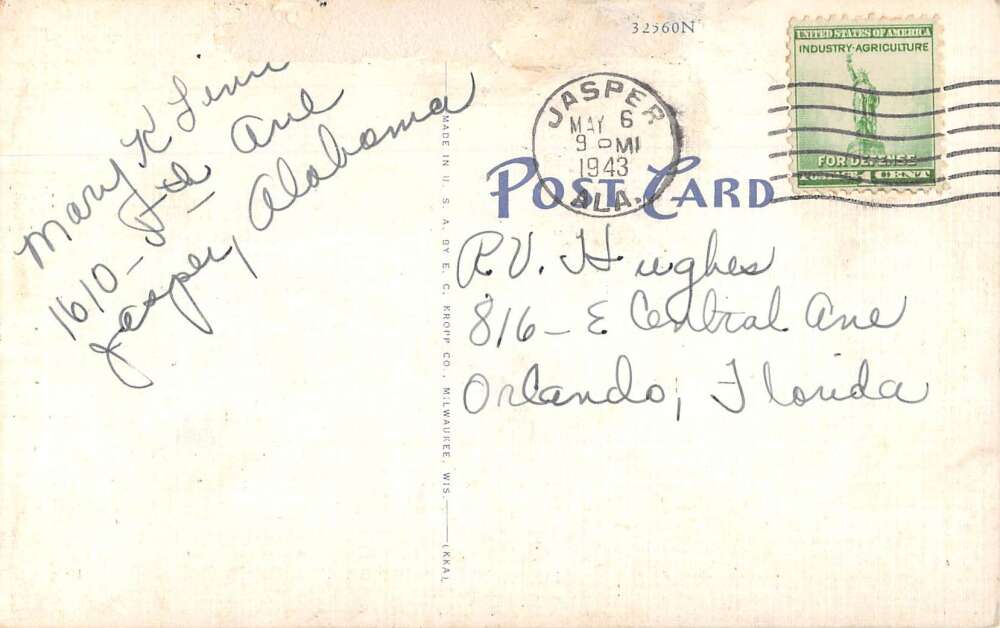 32560N
UNITED STATES OF AMERICA
INDUSTRY-AGRICULTURE
FOR DEFENSE
POSTAGE 1 CENT
JASPER
MAY 6
9 PM
1943
ALA.
POST CARD
Mary K
1610 - Ave
Jasper, Alabama
MADE IN U. S. A. BY E. C. KROPP CO., MILWAUKEE, WIS. (KKA)
R.V. Hughes
816 - E Central Ave
Orlando, Florida